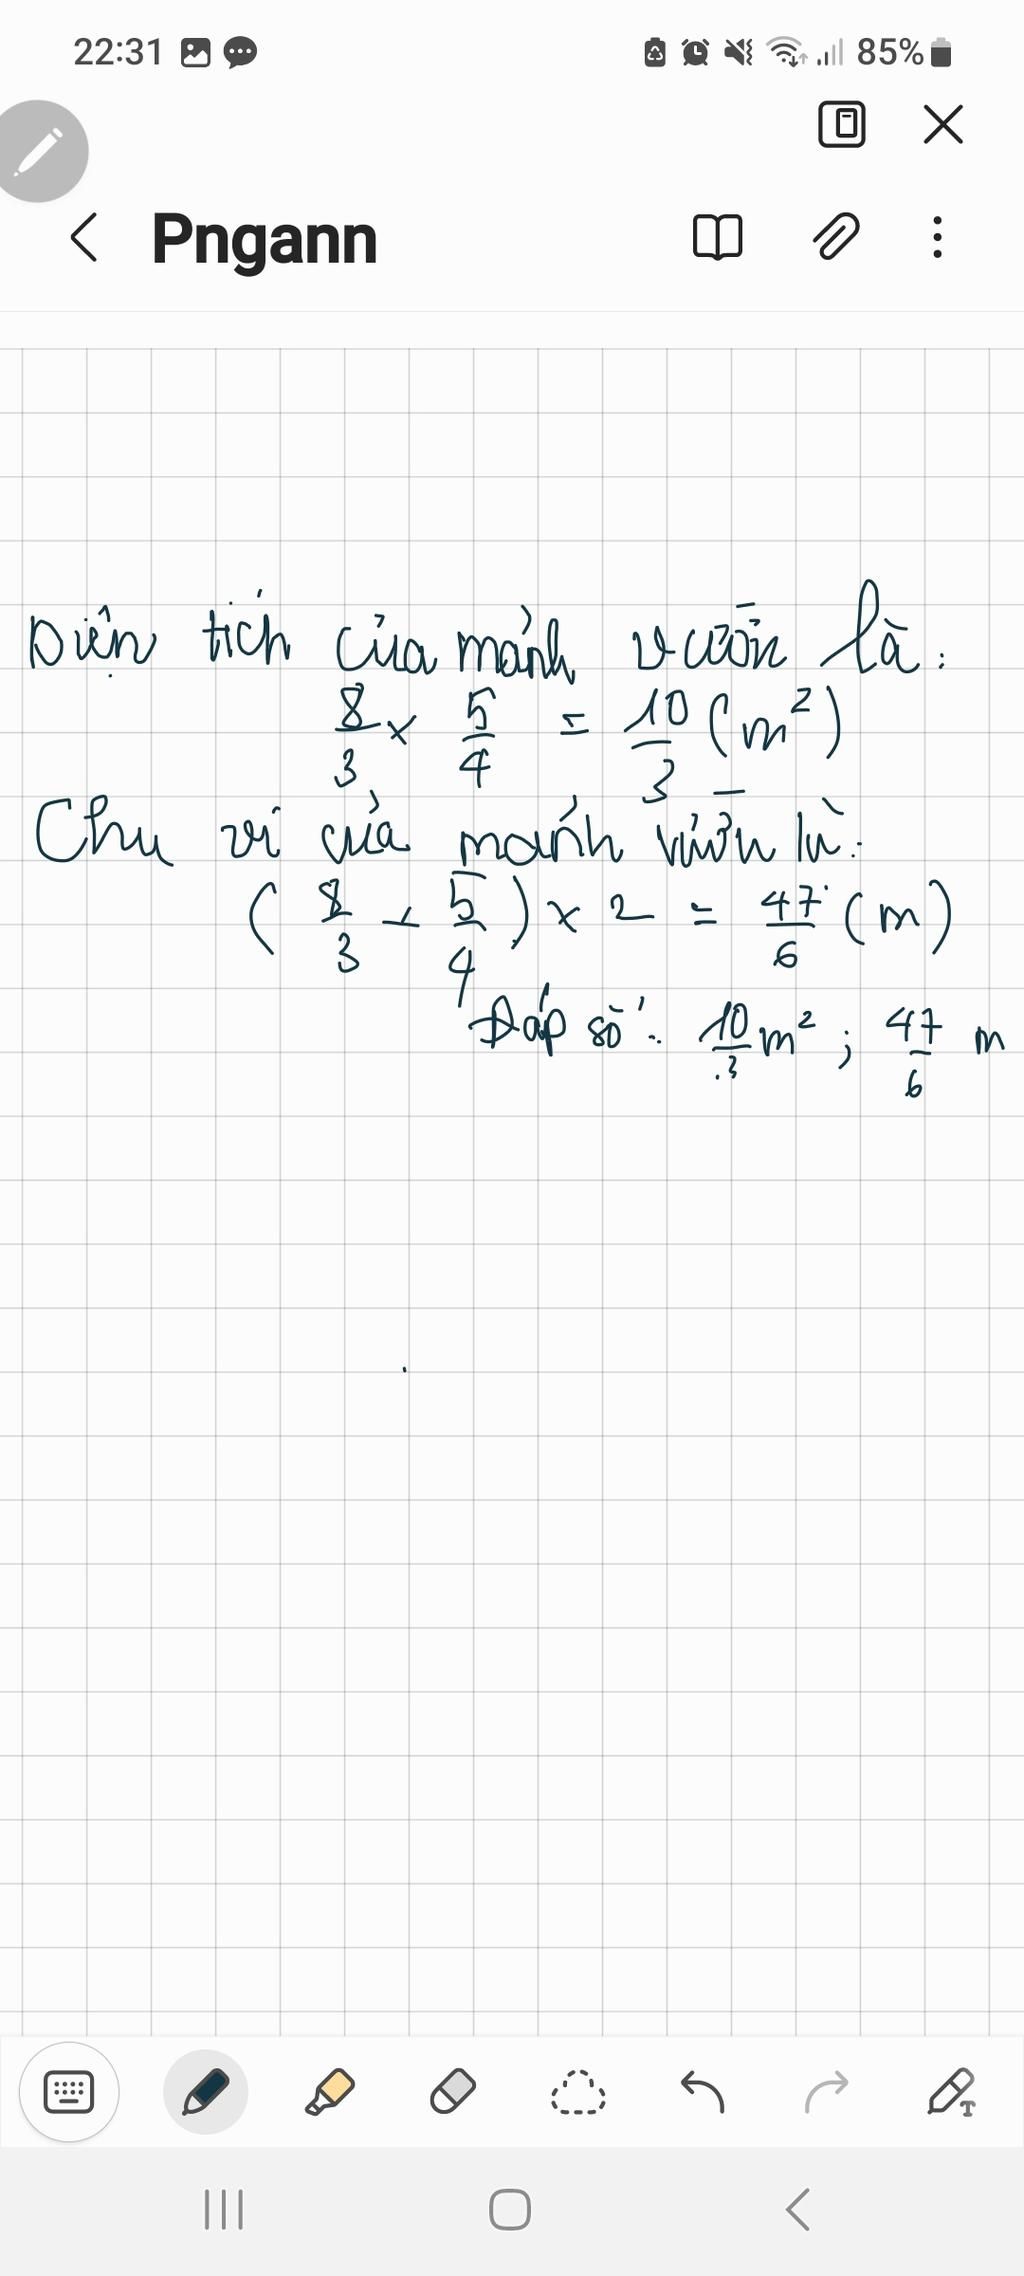 22:31 85%
Pngann
Diện tích của mảnh vườn là:
8/3 x 5/4 = 10/3 (m²)
Chu vi của mảnh vườn là:
(8/3 + 5/4) x 2 = 47/6 (m)
Đáp số: 10/3 m² ; 47/6 m
T